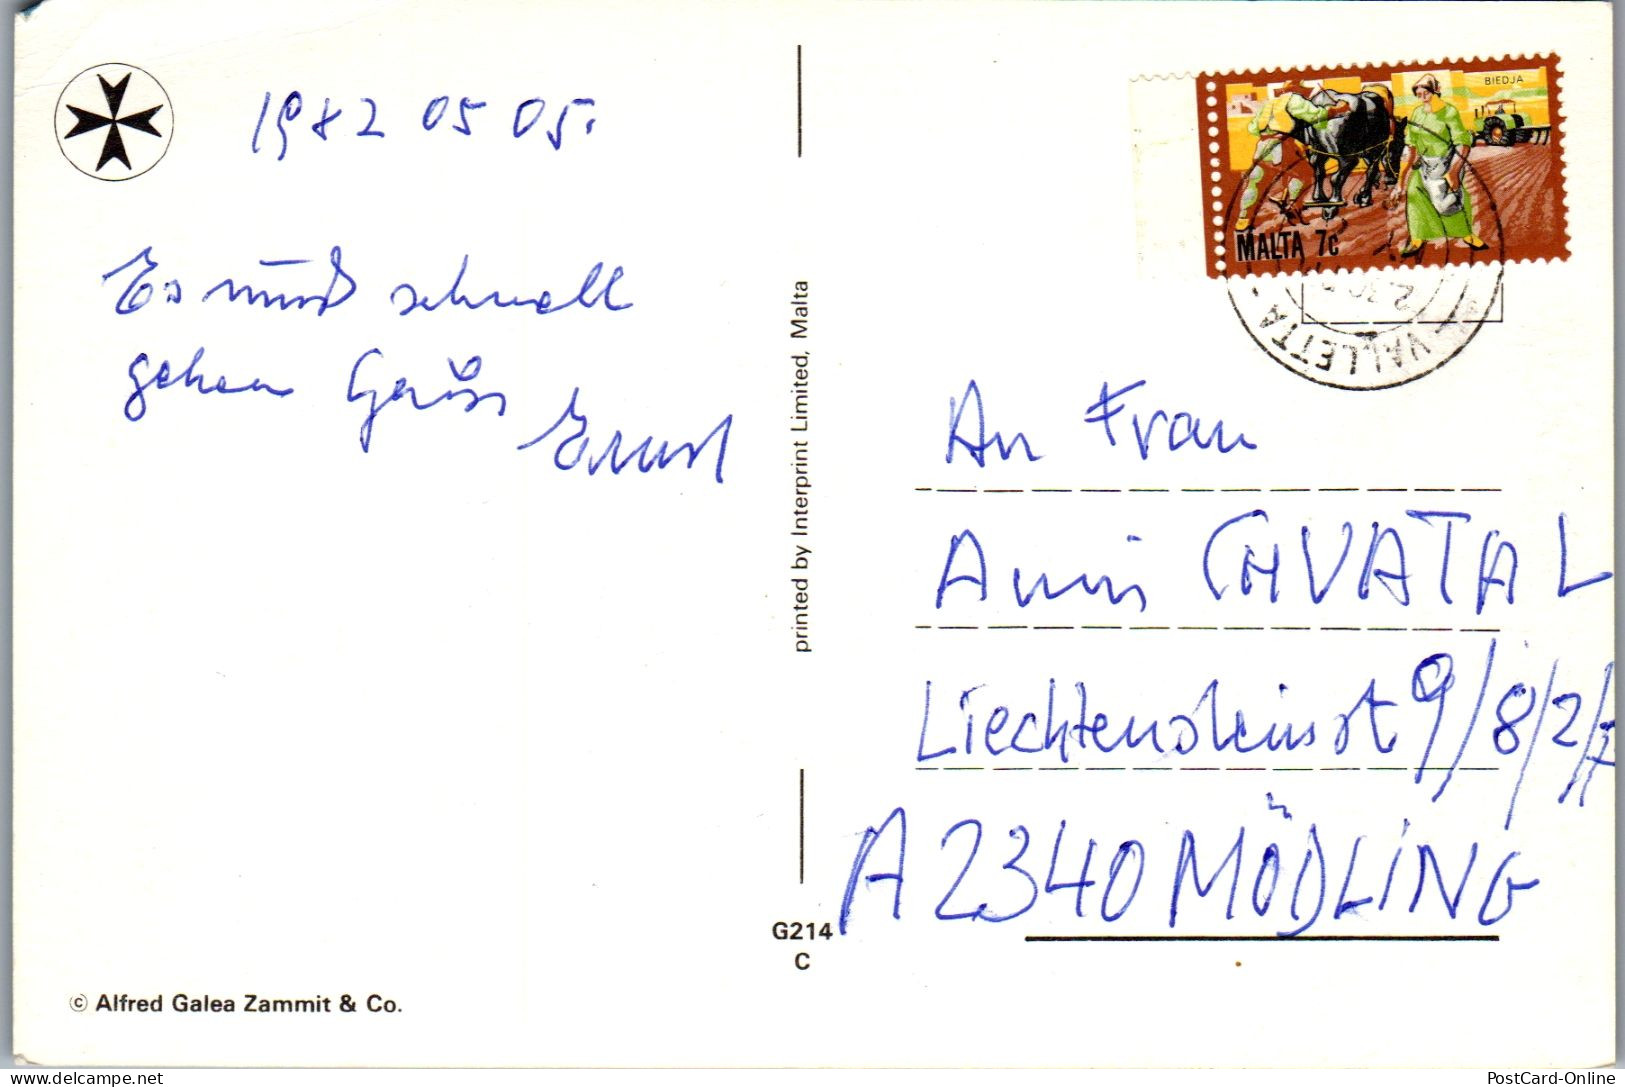 1982 05 05.
Es muß schnell
gehen Grüße
Ernst
© Alfred Galea Zammit & Co.
printed by Interprint Limited, Malta
G214
C
BIEDJA
MALTA 7c
VALLETTA
An Frau
Anni CHVATAL
Liechtensteinst 9/8/2/7
A 2340 MÖDLING
delcampe.net
PostCard-Online